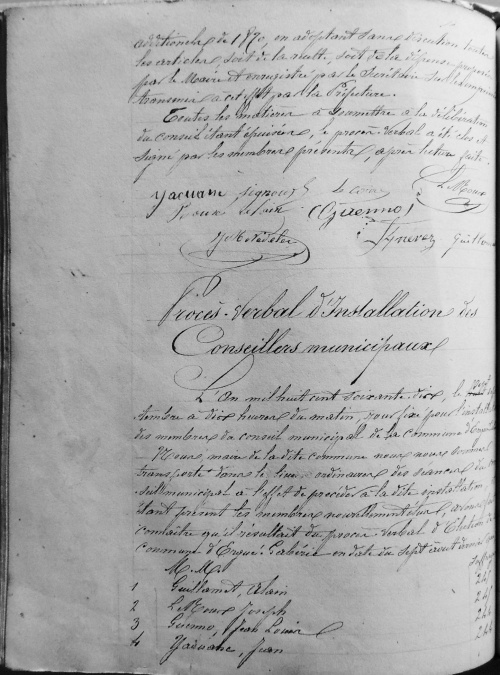 additionels de 1870, en adoptant sans discussion toutes
les articles, soit de la recette, soit de la dépense proposés
par le Maire et enregistré par le Secrétaire sur l'imprimé
transmis à cet effet par la Préfecture.
Toutes les matières à soumettre à la délibération
du conseil étant épuisées, le procès-verbal a été clos et
signé par les membres présents, après lecture faite.
yaouanc le coeur Le Roux
Procès-Verbal d'Installation des
Conseillers municipaux
L'An mil huit cent soixante dix, le
tembre à dix heures du matin, jour fixé pour l'install
des membres du conseil municipal de la commune d'Ergué
Nous, maire de la dite commune nous nous sommes
transporté dans le lieu ordinaire des séances du
seil municipal à l'effet de procéder à la dite installation,
étant présent les membres nouvellement élus, avons
connaître qu'il résultait du procès verbal d'Election de
commune d'Ergué-Gabéric en date du sept août dernier
M.M.
1 Guillamet, Alain 247
2 Le Roux Joseph 247
3 Guenno, Jean Louis 244
4 Yaouanc, Jean 244